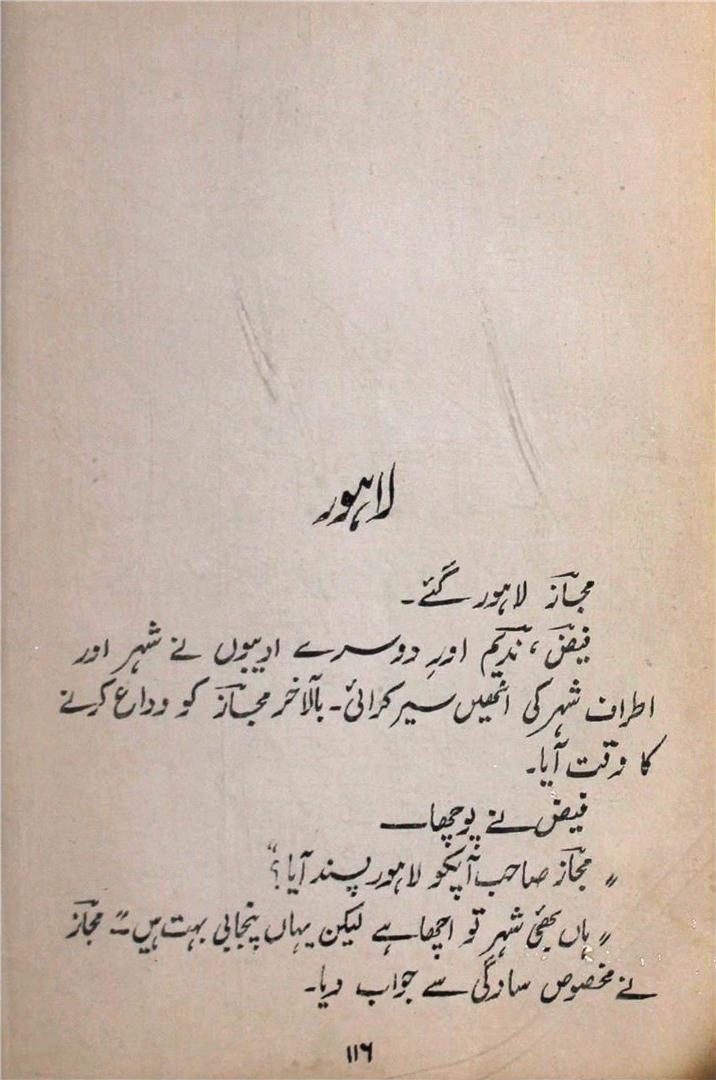 لاہور
مجازؔ لاہور گئے۔
فیضؔ، ندیمؔ اور دوسرے ادیبوں نے شہر اور
اطراف شہر کی انھیں سیر کرائی۔ بالآخر مجازؔ کو وداع کرنے
کا وقت آیا۔
فیضؔ نے پوچھا۔
"مجازؔ صاحب آپکو لاہور پسند آیا؟"
"ہاں بھئی شہر تو اچھا ہے لیکن یہاں پنجابی بہت ہیں۔" مجازؔ
نے مخصوص سادگی سے جواب دیا۔
۱۱۶